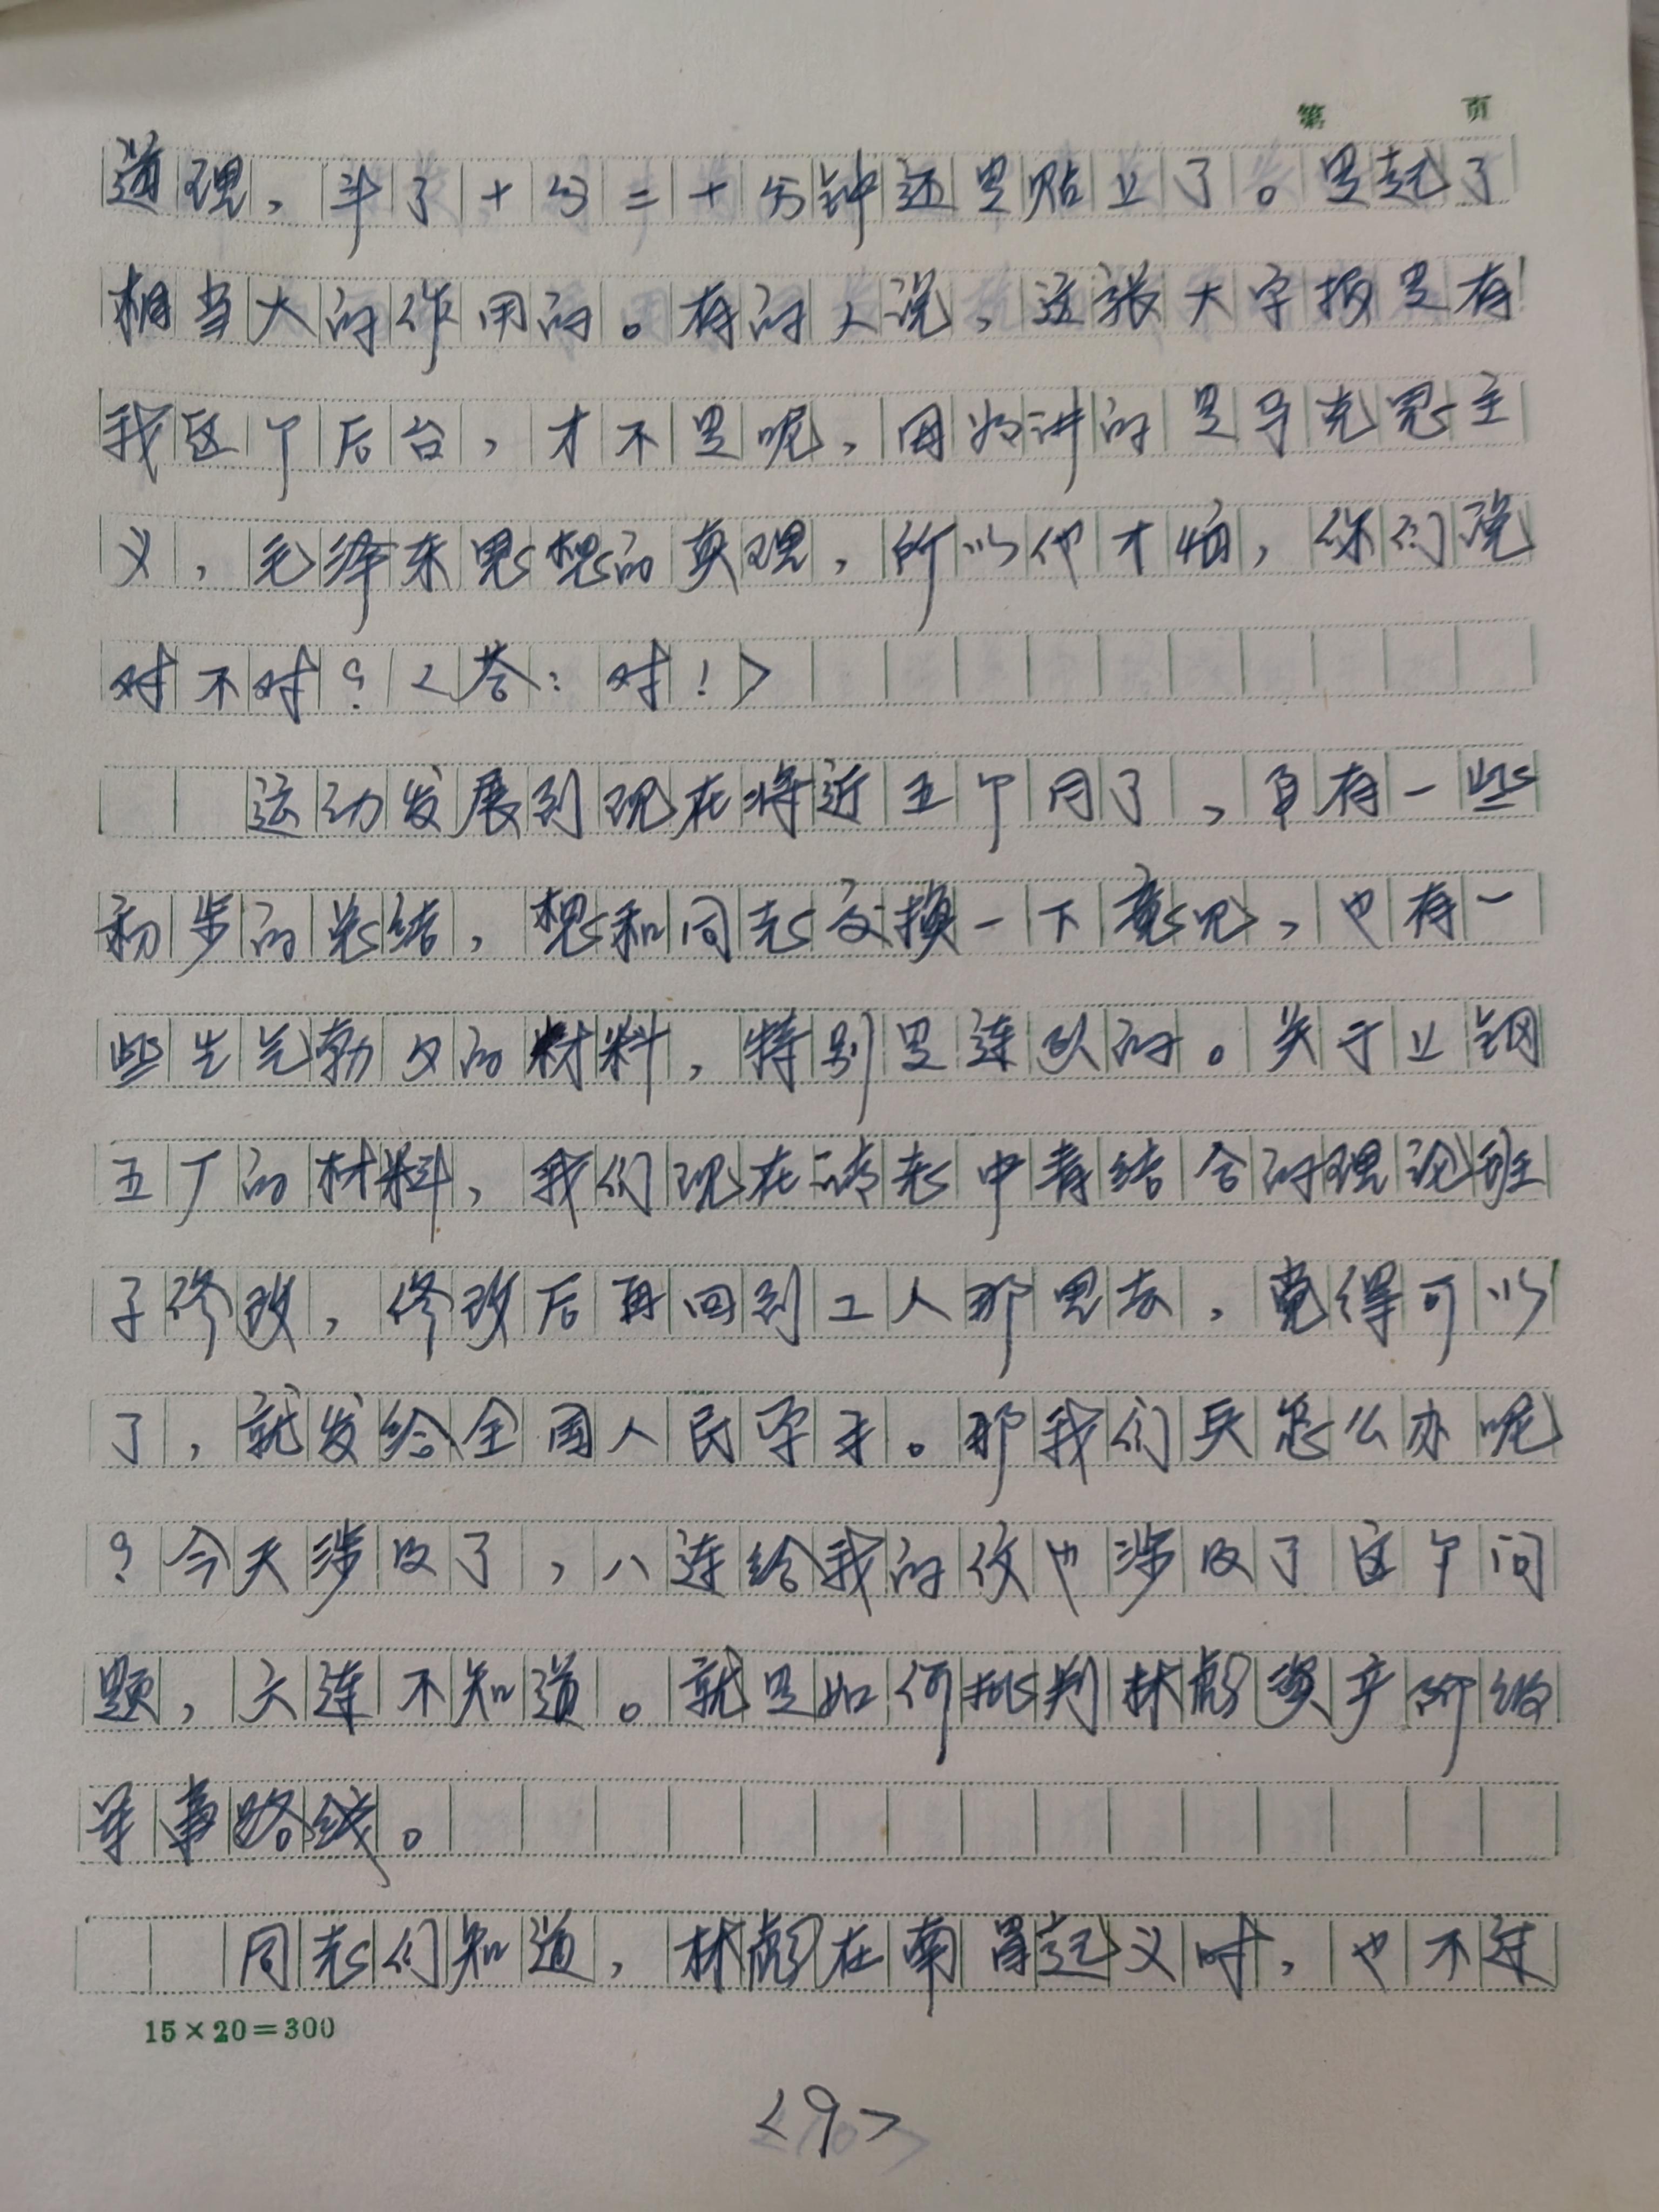 第 页
道理，斗了十分二十分钟还是贴上了。是起了
相当大的作用的。有的人说，这张大字报是有
我这个后台，才不是呢，因为讲的是马克思主
义，毛泽东思想的真理，所以他才怕，你们说
对不对？<答：对！>
运动发展到现在将近五个月了，自有一些
初步的总结，想和同志交换一下意见，也有一
些生气勃勃的材料，特别是连队的。关于上钢
五厂的材料，我们现在请老中青结合的理论班
子修改，修改后再回到工人那里去，觉得可以
了，就发给全国人民学习。那我们兵怎么办呢
？今天涉及了，八连给我的信也涉及了这个问
题，六连不知道。就是如何批判林彪资产阶级
军事路线。
同志们知道，林彪在南昌起义时，也不过
15×20=300
<9>